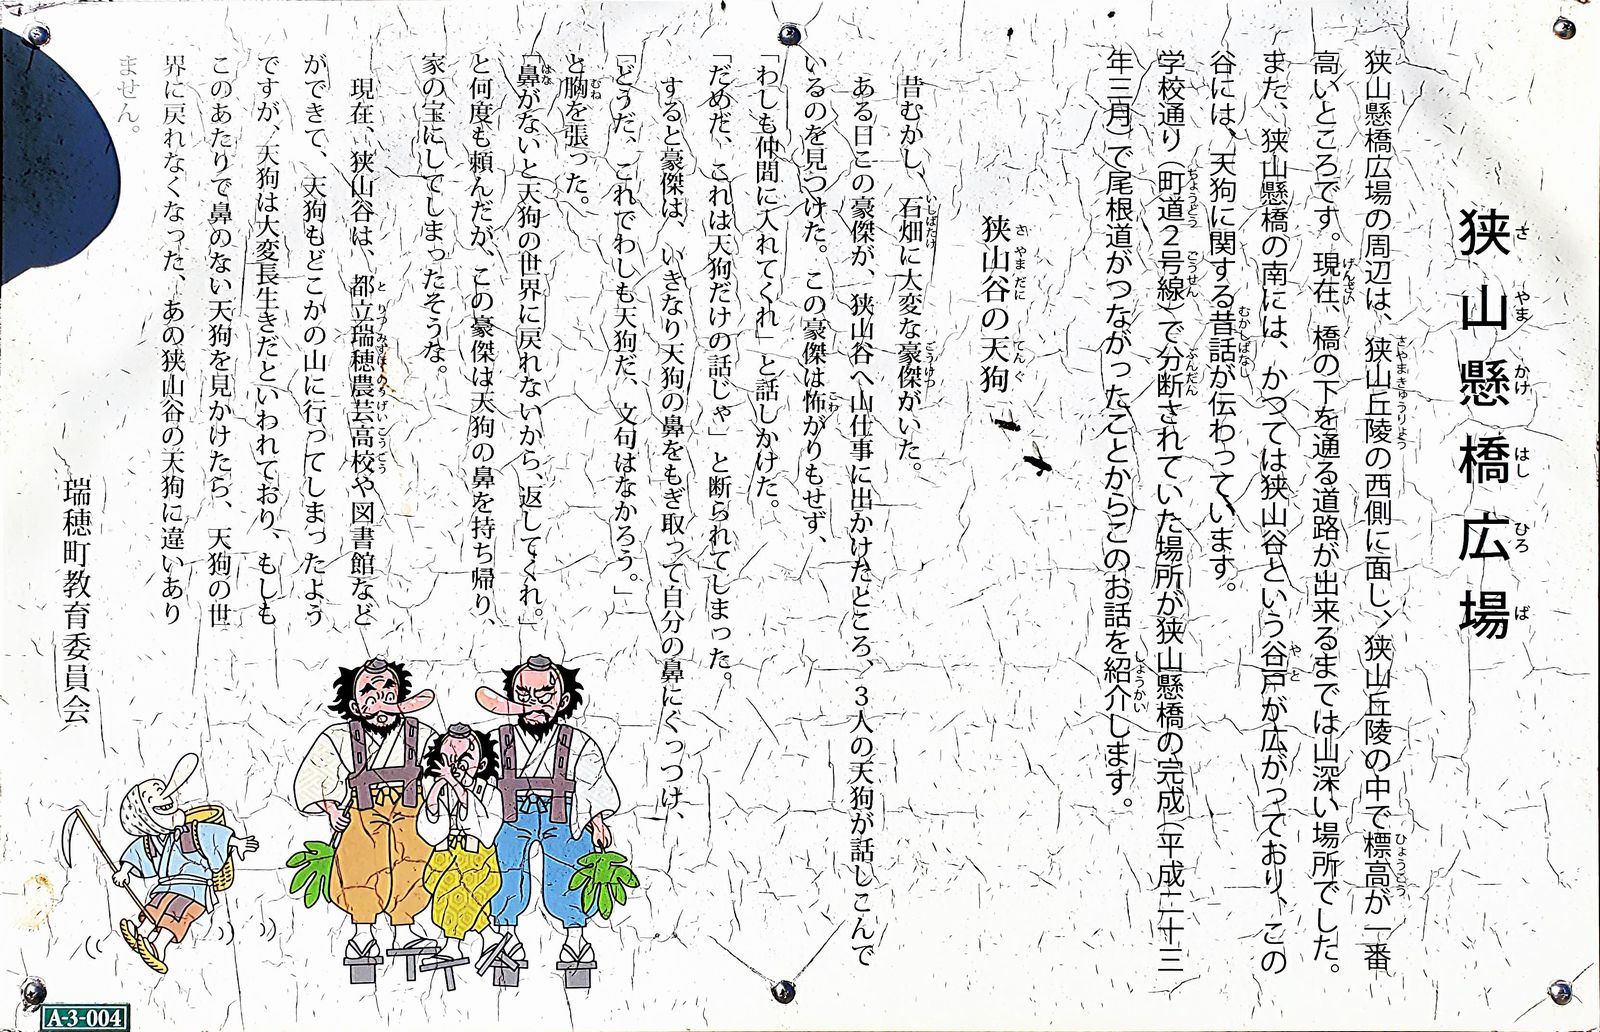 狭山懸橋広場
さやまかけはしひろば
狭山懸橋広場の周辺は、狭山丘陵の西側に面し、狭山丘陵の中で標高が一番
さやまきゅうりょう
ひょうこう
高いところです。現在、橋の下を通る道路が出来るまでは山深い場所でした。
げんざい
また、狭山懸橋の南には、かつては狭山谷という谷戸が広がっており、この
やと
谷には、天狗に関する昔話が伝わっています。
むかしばなし
学校通り（町道２号線）で分断されていた場所が狭山懸橋の完成（平成二十三
ちょうどう
ごうせん
ぶんだん
年三月）で尾根道がつながったことからこのお話を紹介します。
しょうかい
狭山谷の天狗
さやまだに
てんぐ
昔むかし、石畑に大変な豪傑がいた。
いしばたけ
ごうけつ
ある日この豪傑が、狭山谷へ山仕事に出かけたところ、３人の天狗が話しこんで
いるのを見つけた。この豪傑は怖がりもせず、
こわ
「わしも仲間に入れてくれ」と話しかけた。
「だめだ、これは天狗だけの話じゃ」と断られてしまった。
すると豪傑は、いきなり天狗の鼻をもぎ取って自分の鼻にくっつけ、
「どうだ、これでわしも天狗だ、文句はなかろう。」
と胸を張った。
むね
「鼻がないと天狗の世界に戻れないから、返してくれ。」
はな
と何度も頼んだが、この豪傑は天狗の鼻を持ち帰り、
家の宝にしてしまったそうな。
現在、狭山谷は、都立瑞穂農芸高校や図書館など
とりつみずほのうげいこうこう
ができて、天狗もどこかの山に行ってしまったよう
ですが、天狗は大変長生きだといわれており、もしも
このあたりで鼻のない天狗を見かけたら、天狗の世
界に戻れなくなった、あの狭山谷の天狗に違いあり
ません。
瑞穂町教育委員会
A-3-004